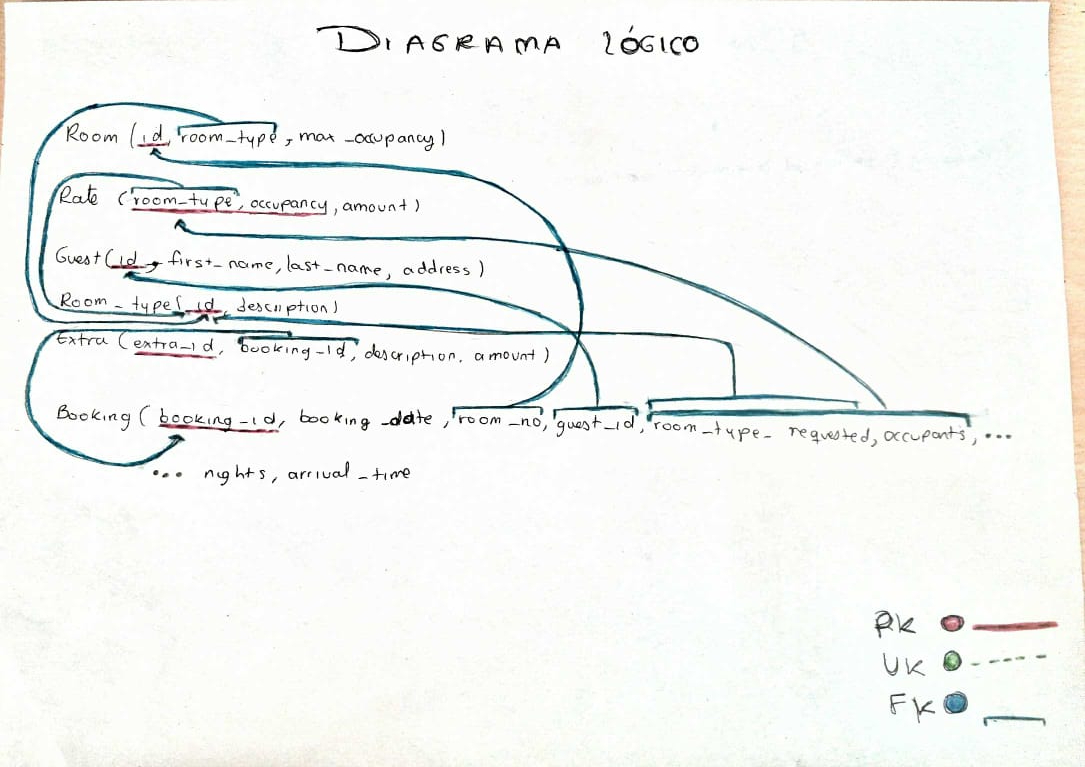 DIAGRAMA LÓGICO
Room (id, room_type, max_occupancy)
Rate (room_type, occupancy, amount)
Guest (id, first_name, last_name, address)
Room_type (id, description)
Extra (extra_id, booking_id, description, amount)
Booking (booking_id, booking_date, room_no, guest_id, room_type_requested, occupants, ...
... nights, arrival_time
PK
UK
FK